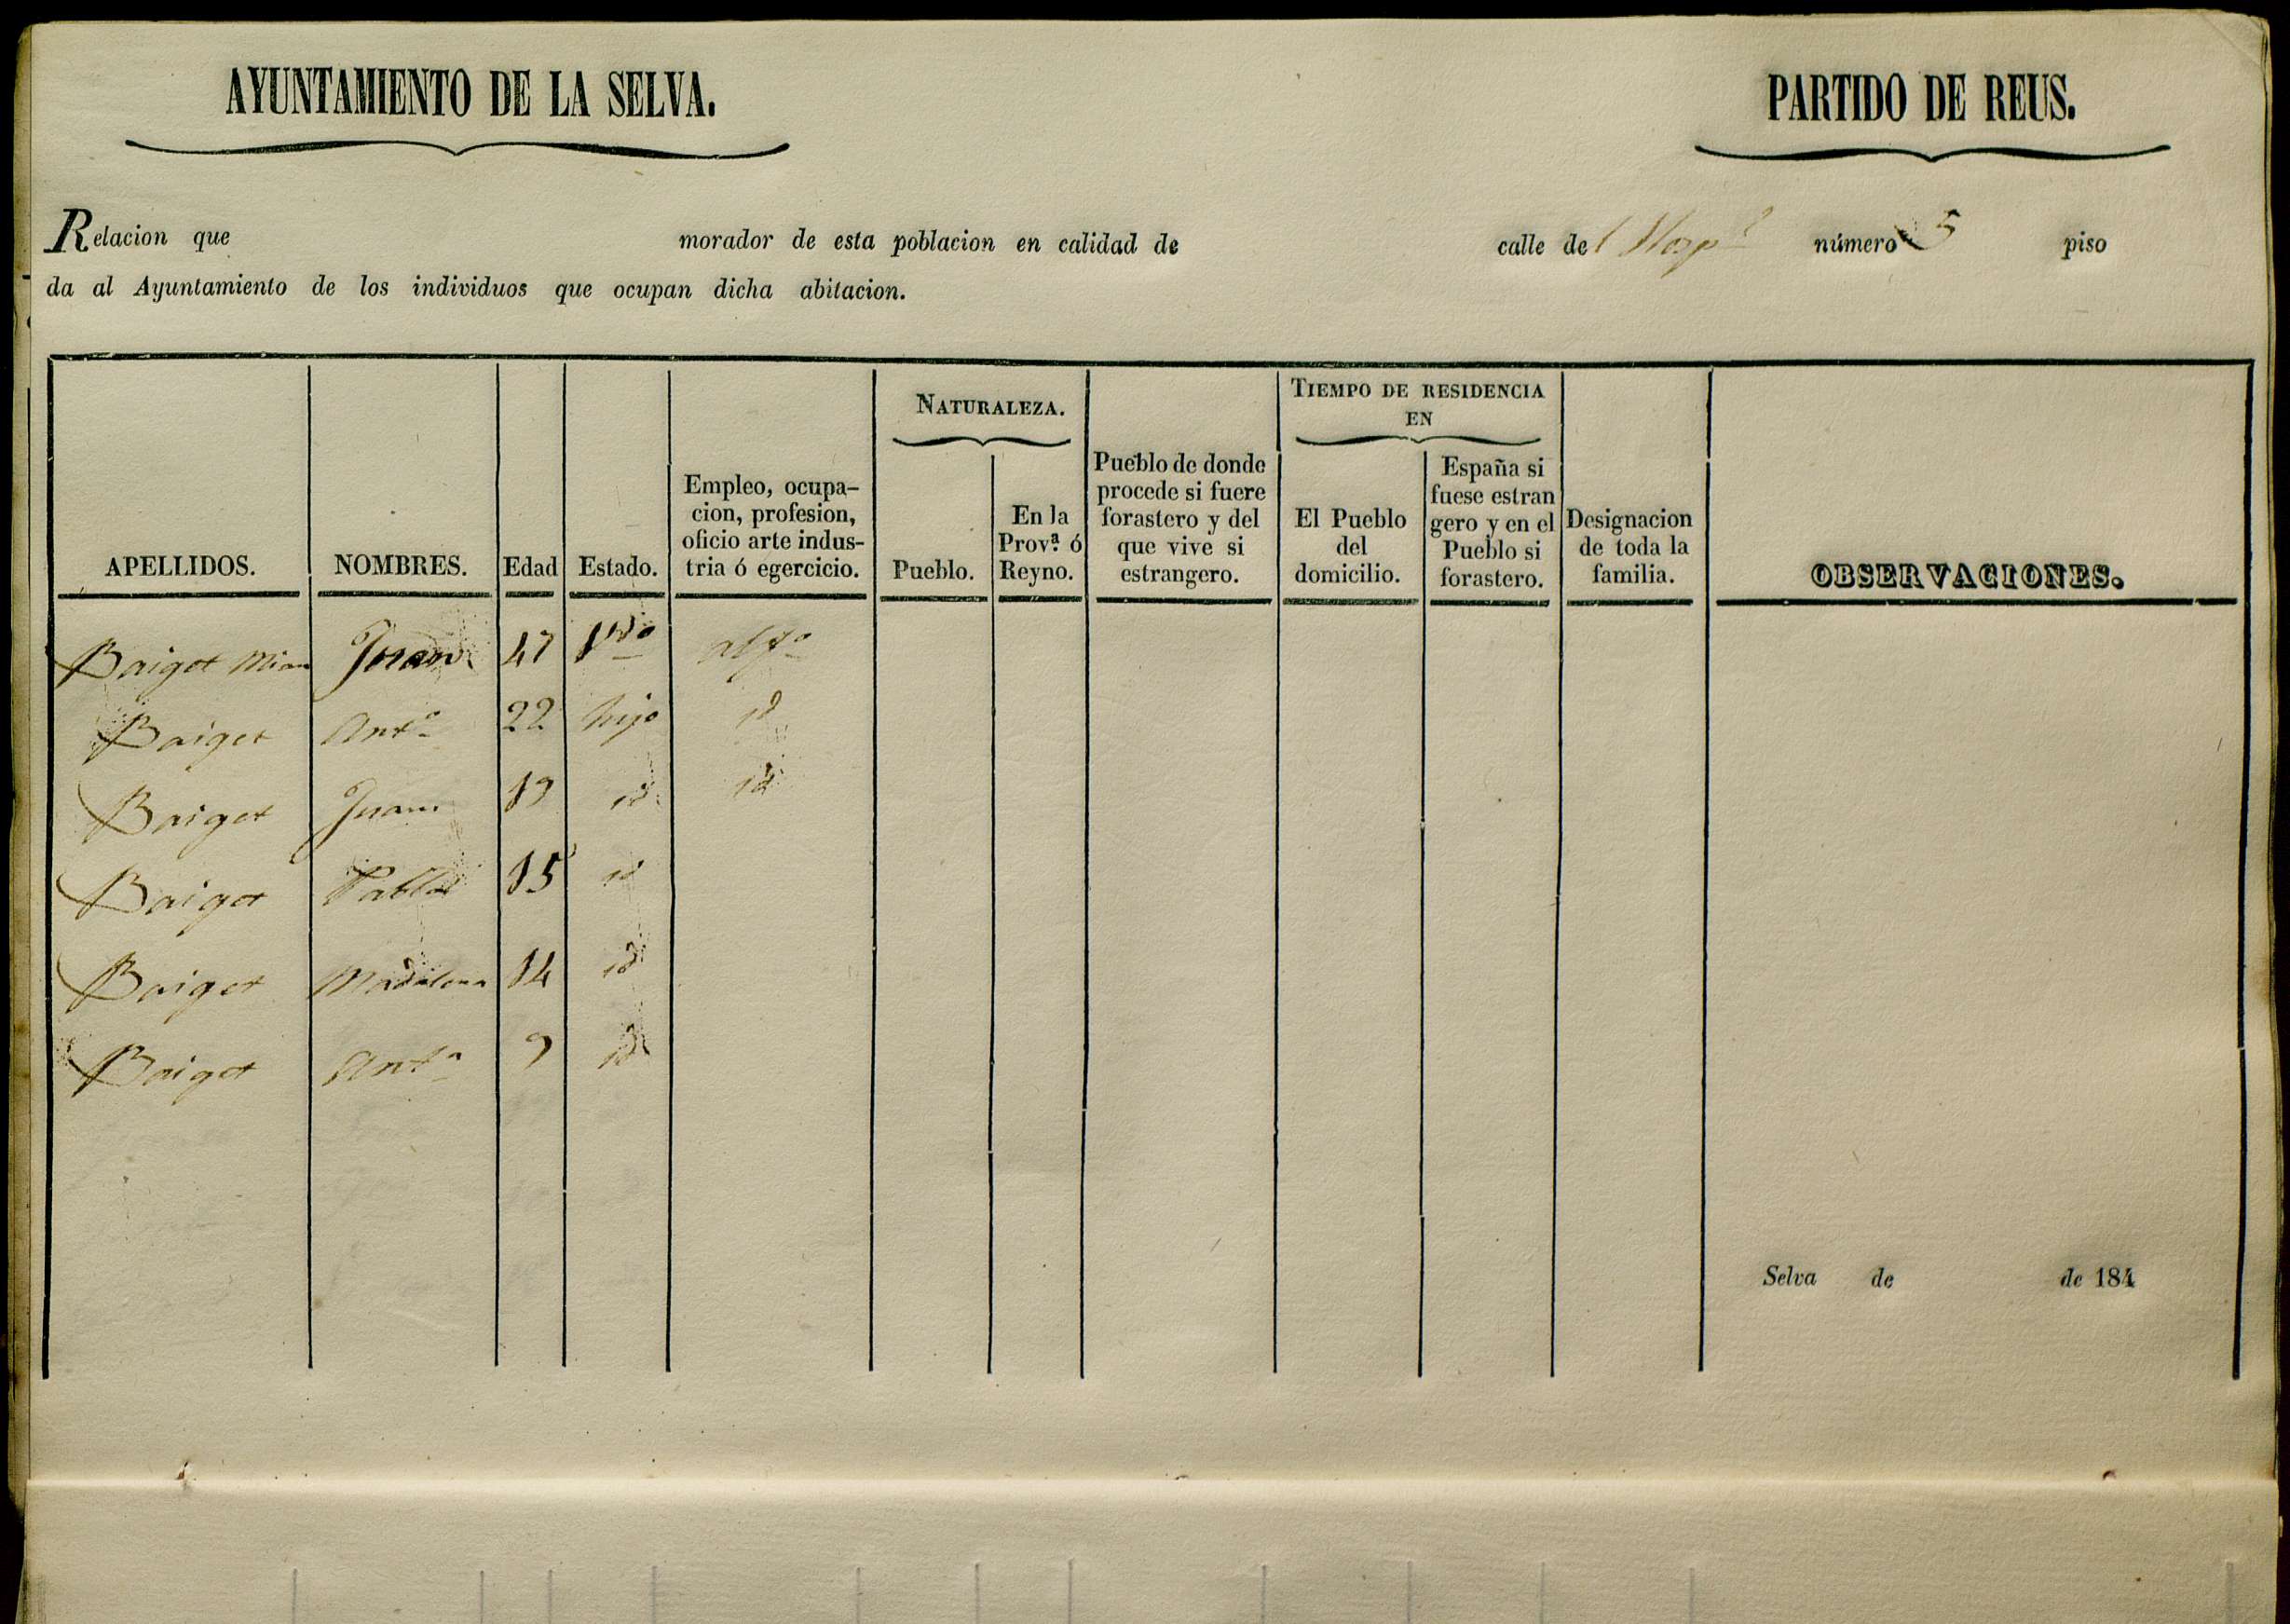 AYUNTAMIENTO DE LA SELVA.
PARTIDO DE REUS.
Relacion que morador de esta poblacion en calidad de calle de número 5 piso
da al Ayuntamiento de los individuos que ocupan dicha abitacion.
APELLIDOS.
NOMBRES.
Edad
Estado.
Empleo, ocupa-
cion, profesion,
oficio arte indus-
tria ó egercicio.
NATURALEZA.
Pueblo.
En la
Prov.ª ó
Reyno.
Pueblo de donde
procede si fuere
forastero y del
que vive si
estrangero.
TIEMPO DE RESIDENCIA
EN
El Pueblo
del
domicilio.
España si
fuese estran
gero y en el
Pueblo si
forastero.
Designacion
de toda la
familia.
OBSERVACIONES.
Baiget Juan 47 Vdo
Baiget Anto 22 hijo id
Baiget Juan 19 id id
Baiget Pablo 15 id
Baiget Madalena 14 id
Baiget Anta 9 id
Selva de de 184